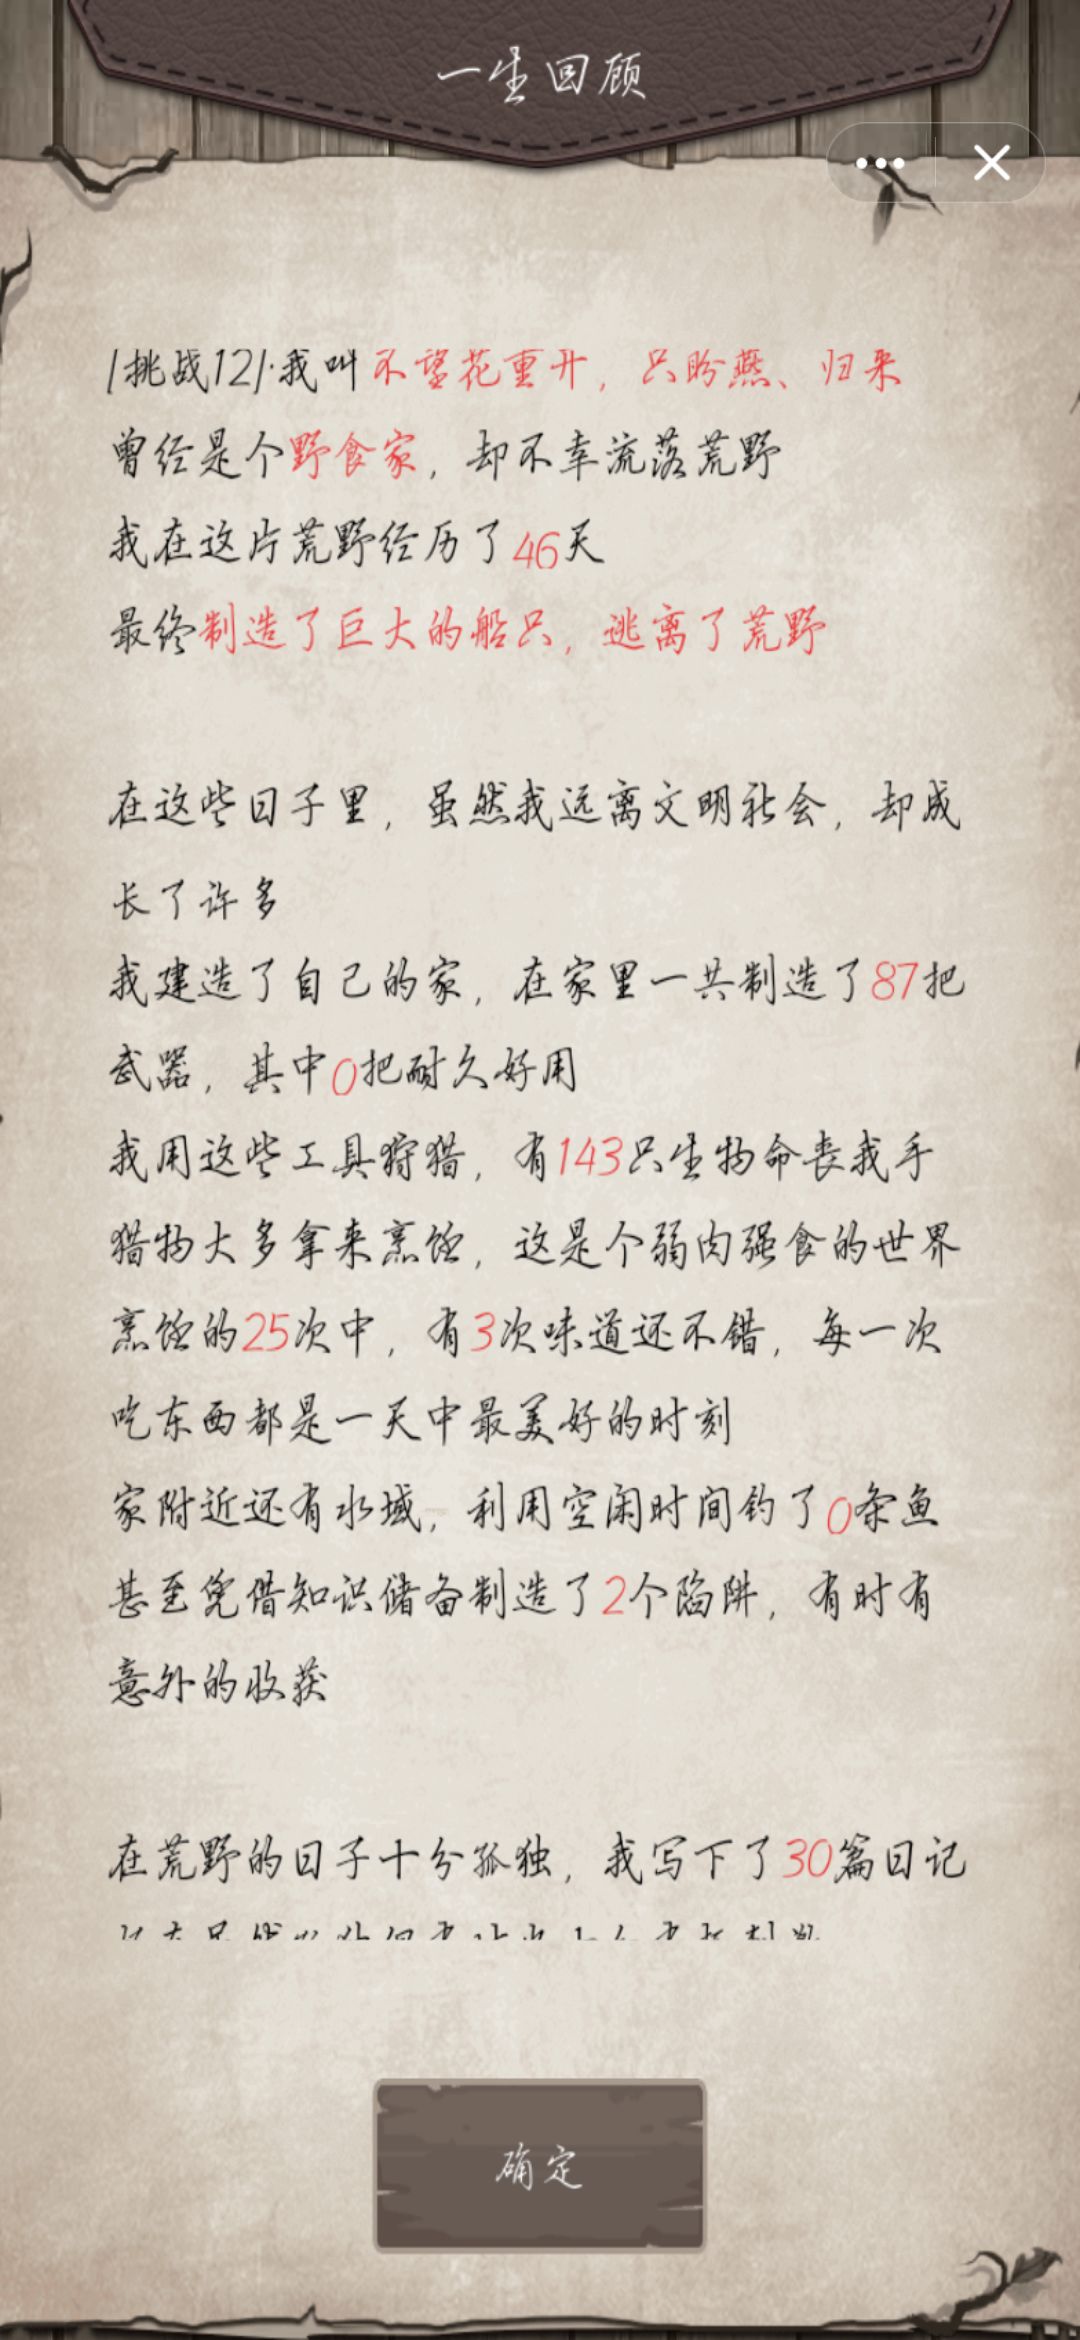 一生回顾
[挑战12]·我叫不望花重开，只盼燕、归来
曾经是个野食家，却不幸流落荒野
我在这片荒野经历了46天
最终制造了巨大的船只，逃离了荒野
在这些日子里，虽然我远离文明社会，却成
长了许多
我建造了自己的家，在家里一共制造了87把
武器，其中0把耐久好用
我用这些工具狩猎，有143只生物命丧我手
猎物大多拿来烹饪，这是个弱肉强食的世界
烹饪的25次中，有3次味道还不错，每一次
吃东西都是一天中最美好的时刻
家附近还有水域，利用空闲时间钓了0条鱼
甚至凭借知识储备制造了2个陷阱，有时有
意外的收获
在荒野的日子十分孤独，我写下了30篇日记
确定